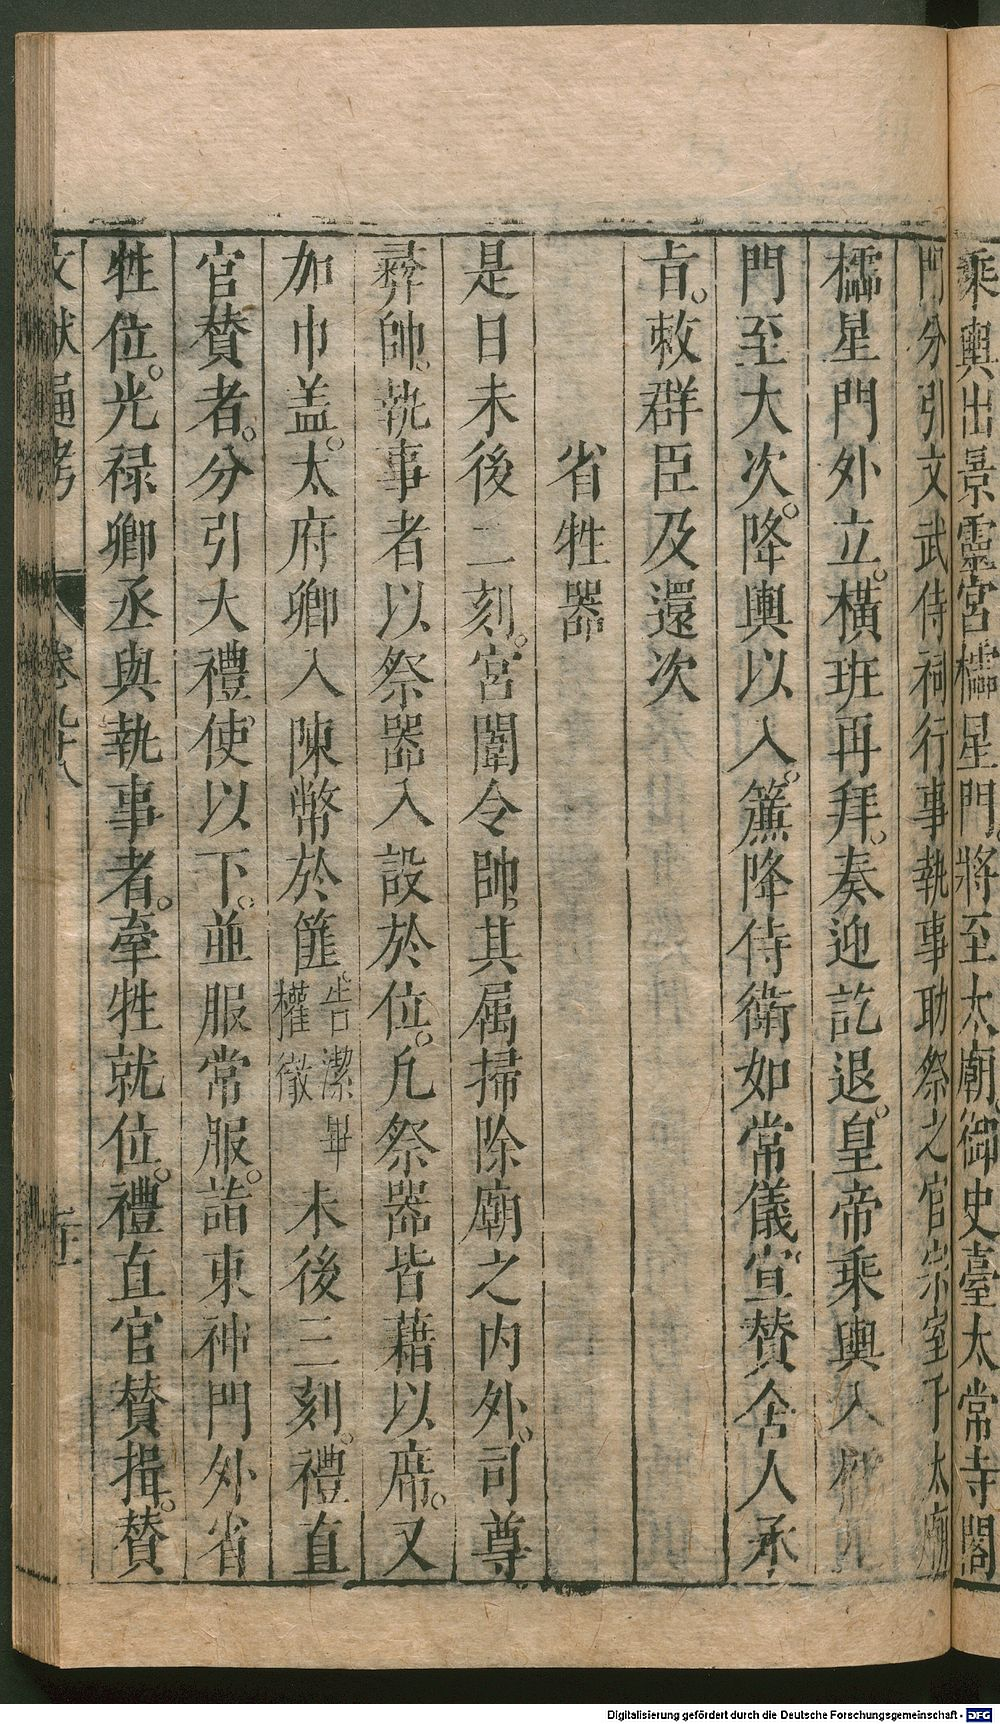 乘輿出景靈宮櫺星門將至太廟。御史臺太常寺閤
門分引文武侍祠行事執事助祭之官宗室于太廟
櫺星門外立。橫班再拜。奏迎訖退。皇帝乘輿入櫺星
門至大次。降輿以入。簾降侍衛如常儀宣贊舍人承
㫖。敕群臣及還次
省牲器
是日未後二刻。宮闈令帥其属掃除廟之内外。司尊
彛帥。執事者以祭器入設於位。凡祭器皆藉以席。又
加巾盖。太府卿入陳幣於篚。告潔畢權徹未後三刻。禮直
官贊者。分引大禮使以下。並服常服。詣東神門外省
牲位。光禄卿丞與執事者。牽牲就位。禮直官贊揖。贊
文獻通考 卷九十八
Digitalisierung gefördert durch die Deutsche Forschungsgemeinschaft - DFG